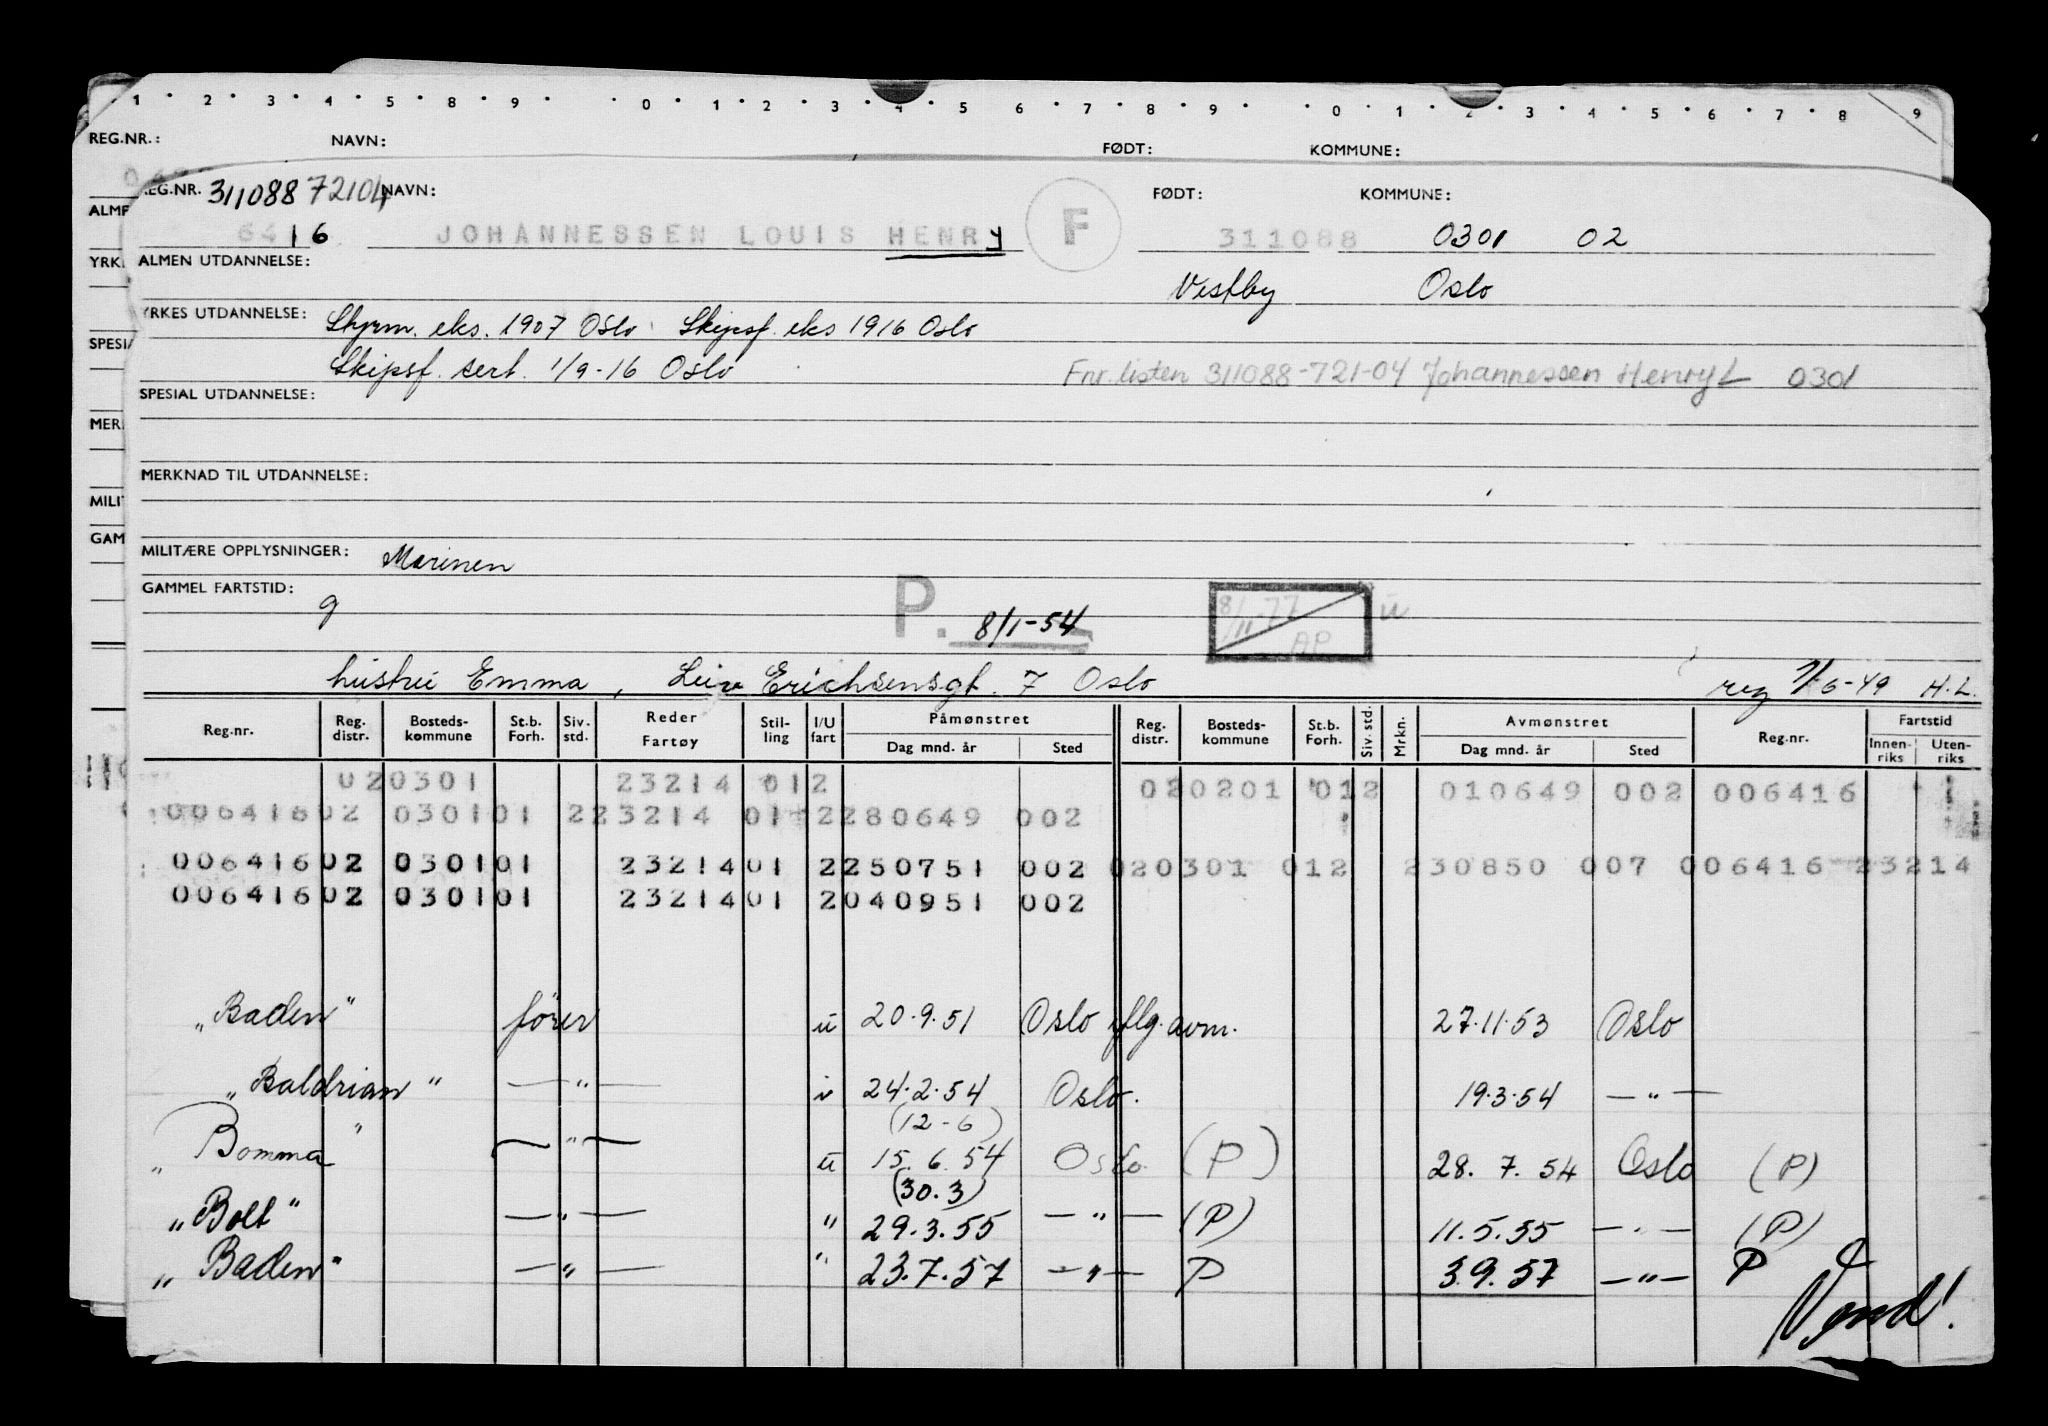 1 2 3 4 5 8 9 0 1 2 3 4 5 6 7 8 9 0 1 2 3 4 5 6 7 8 9
REG.NR.: NAVN: FØDT: KOMMUNE:
REG.NR. 311088 72104 NAVN: FØDT: KOMMUNE:
6416 JOHANNESSEN LOUIS HENRY F 311088 0301 02
ALMEN UTDANNELSE: Vestby Oslo
YRKES UTDANNELSE: Styrm. eks. 1907 Oslo Skipsf. eks 1916 Oslo
Skipsf. sert. 1/9-16 Oslo Fnr. listen 311088-721-04 Johannessen Henry L 0301
SPESIAL UTDANNELSE:
MERKNAD TIL UTDANNELSE:
MILITÆRE OPPLYSNINGER: Marinen
GAMMEL FARTSTID: g
P. 8/1-54 8/11-77 AP u
hustru Emma, Leiv Erichsensgt. 7 Oslo reg 7/6-49 H.L.
Reg.nr. Reg. distr. Bosteds-kommune St.b. Forh. Siv. std. Reder Fartøy Stil-ling I/U fart Påmønstret Dag mnd. år Sted Reg. distr. Bosteds-kommune St.b. Forh. Siv. std. Mrkn. Avmønstret Dag mnd. år Sted Reg.nr. Fartstid Innen-riks Uten-riks
020301 23214 012 020201 012 010649 002 006416
006416 02 0301 01 2 23214 01 2 280649 002
006416 02 0301 01 23214 01 2 250751 002 020301 012 230850 007 006416 23214
006416 02 0301 01 23214 01 2 040951 002
"Baden" fører u 20.9.51 Oslo flg. avm. 27.11.53 Oslo
"Baldrian" — " — i 24.2.54 Oslo. 19.3.54 — " —
(12-6)
"Bomma" — " — u 15.6.54 Oslo. (P) 28.7.54 Oslo (P)
(30.3)
"Bolt" — " — " 29.3.55 — " — (P) 11.5.55 — " — (P)
"Baden" — " — " 23.7.57 — " — P 3.9.57 — " — P
Vend!